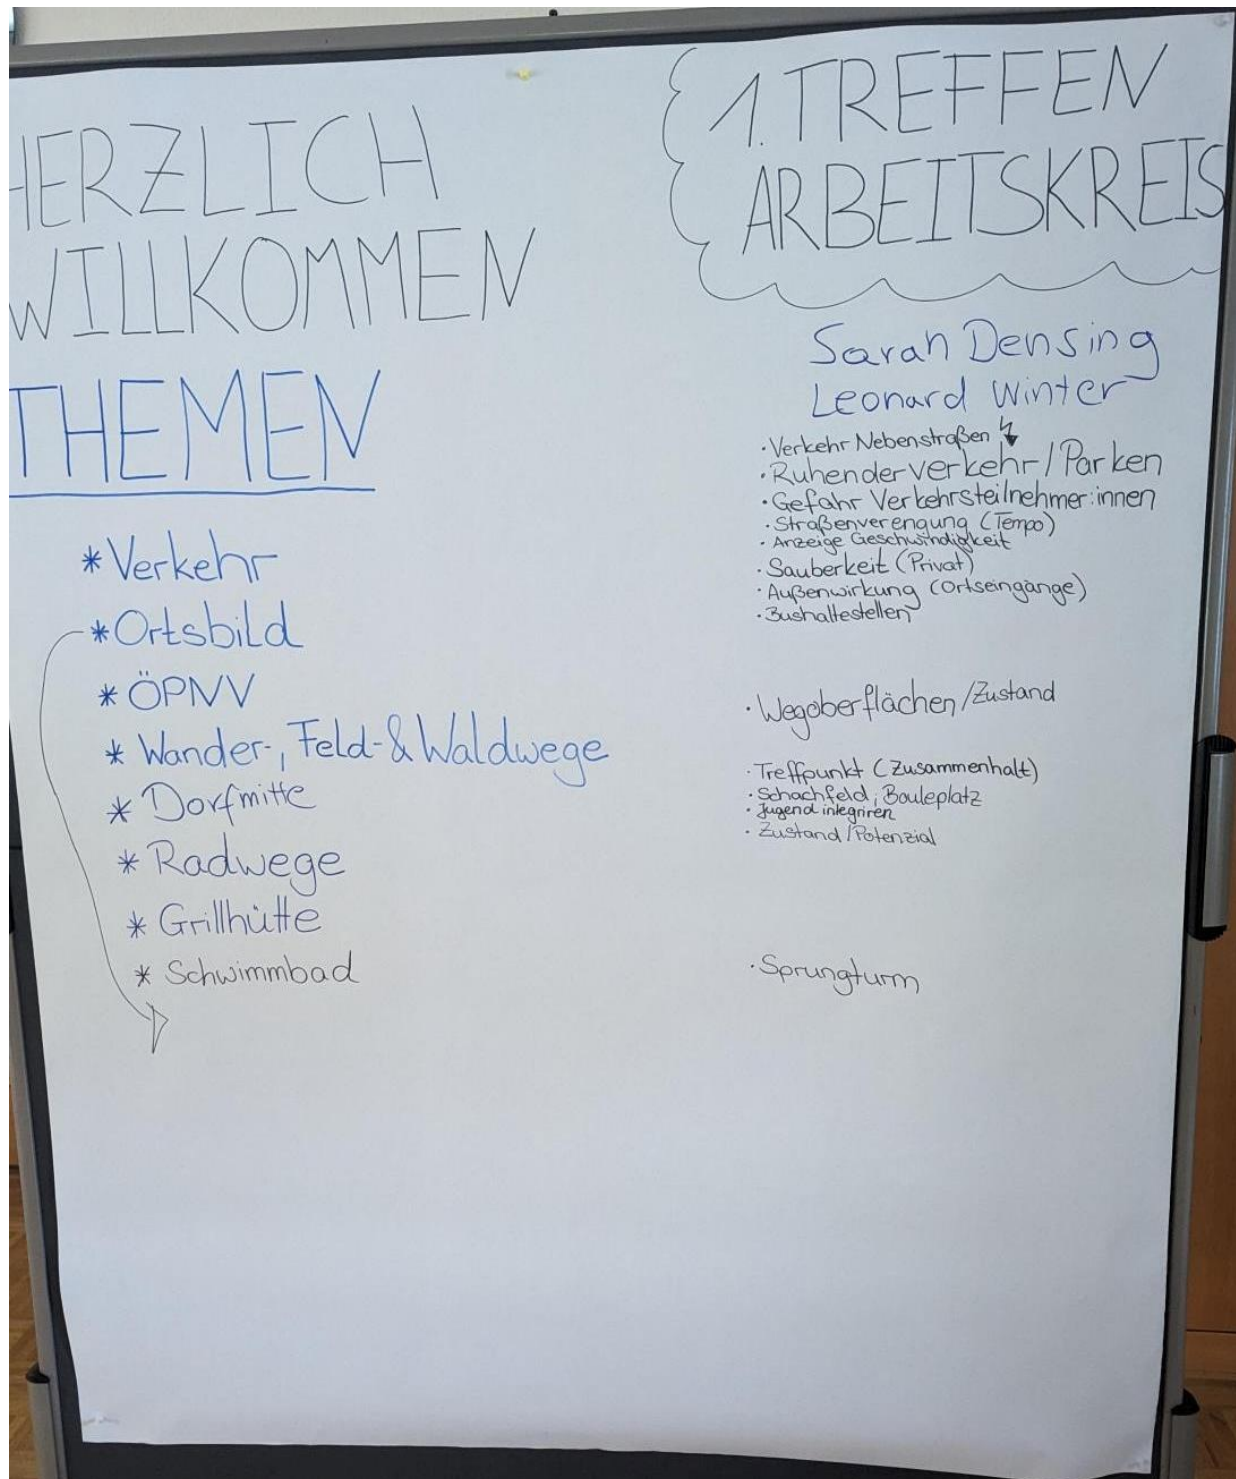 HERZLICH
WILLKOMMEN
1. TREFFEN
ARBEITSKREIS
THEMEN
* Verkehr
* Ortsbild
* ÖPNV
* Wander-, Feld- & Waldwege
* Dorfmitte
* Radwege
* Grillhütte
* Schwimmbad
Sarah Densing
Leonard Winter
· Verkehr Nebenstraßen
· Ruhender verkehr / Parken
· Gefahr Verkehrsteilnehmer:innen
· Straßenverengung (Tempo)
· Anzeige Geschwindigkeit
· Sauberkeit (Privat)
· Außenwirkung (Ortseingänge)
· Bushaltestellen
· Wegoberflächen/Zustand
· Treffpunkt (Zusammenhalt)
· Schachfeld, Bouleplatz
· Jugend integriren
· Zustand/Potenzial
· Sprungturm